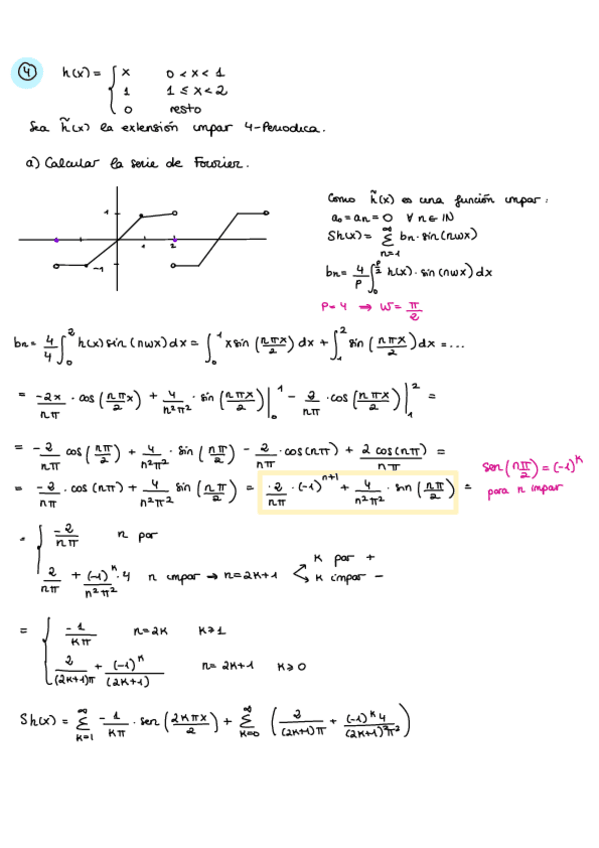 ④ h(x) = { x 0 < x < 1
1 1 ≤ x < 2
0 resto
Sea h̃(x) la extensión impar 4-Periodica.
a) Calcular la serie de Fourier.
1
-1
1 2
Como h̃(x) es una función impar:
a₀ = aₙ = 0 ∀ n ∈ ℕ
Sh(x) = Σ_{n=1}^{∞} bₙ · sin(nωx)
bₙ = 4/P ∫_0^{P/2} h(x) · sin(nωx) dx
P = 4 → ω = π/2
bₙ = 4/4 ∫_0^2 h(x) sin(nωx) dx = ∫_0^1 x sin(nπx/2) dx + ∫_1^2 sin(nπx/2) dx = ...
= -2x/nπ · cos(nπx/2) + 4/n²π² · sin(nπx/2) |_0^1 - 2/nπ · cos(nπx/2) |_1^2 =
= -2/nπ cos(nπ/2) + 4/n²π² · sin(nπ/2) - 2/nπ · cos(nπ) + 2 cos(nπ)/nπ =
= -2/nπ · cos(nπ) + 4/n²π² sin(nπ/2) = 2/nπ · (-1)^{n+1} + 4/n²π² · sin(nπ/2) =
sen(nπ/2) = (-1)^k
para n impar
= { -2/nπ n par
2/nπ + (-1)^k · 4/n²π² n impar → n = 2k+1
k par +
k impar -
= { -1/kπ n = 2k k ≥ 1
2/(2k+1)π + (-1)^k/(2k+1) n = 2k+1 k ≥ 0
Sh(x) = Σ_{k=1}^{∞} -1/kπ · sen(2kπx/2) + Σ_{k=0}^{∞} (2/(2k+1)π + (-1)^k 4/(2k+1)²π²)